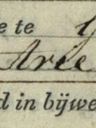 e te
tree
d in bijwe